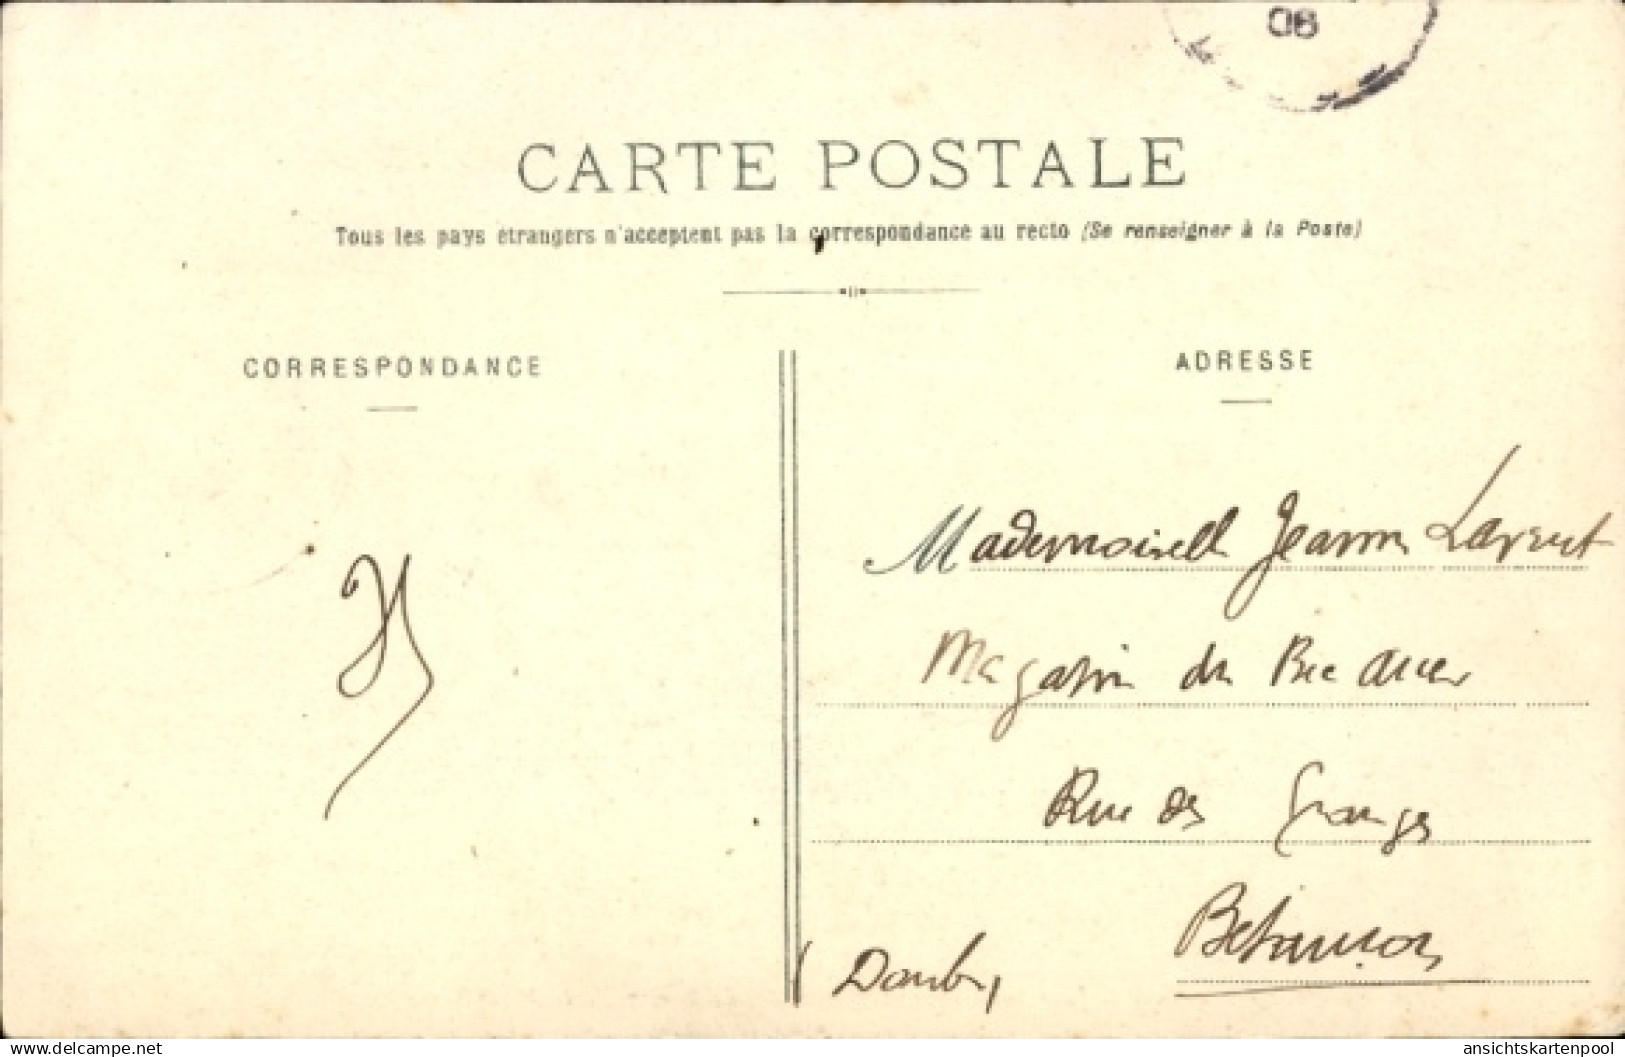 08
CARTE POSTALE
Tous les pays étrangers n'acceptent pas la correspondance au recto (Se renseigner à la Poste)
CORRESPONDANCE
ADRESSE
Mademoiselle Jeanne Laurent
Magasin du
Rue des Granges
Besançon
(Doubs)
www.delcampe.net
ansichtskartenpool